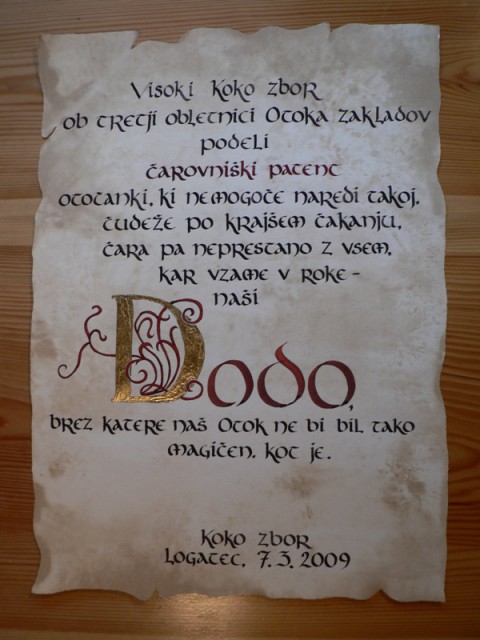 Visoki Koko zbor
ob tretji obletnici Otoka zakladov
podeli
čarovniški patent
otočanki, ki nemogoče naredi takoj,
čudeže po krajšem čakanju,
čara pa neprestano z vsem,
kar vzame v roke -
naši
Dodo,
brez katere naš Otok ne bi bil tako
magičen, kot je.
Koko zbor
Logatec, 7.3.2009